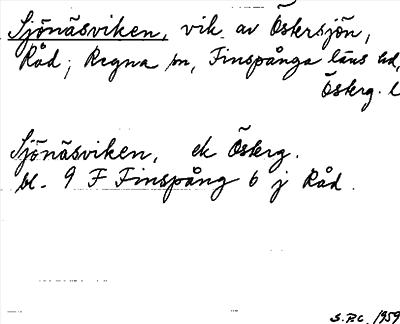 Sjönäsviken, vik av Östersjön,
Råd; Regna sn, Finspånga läns hd,
Österg. l
Sjönäsviken, ek Österg.
bl. 9 F Finspång 6 j Råd.
S.B.C. 1959